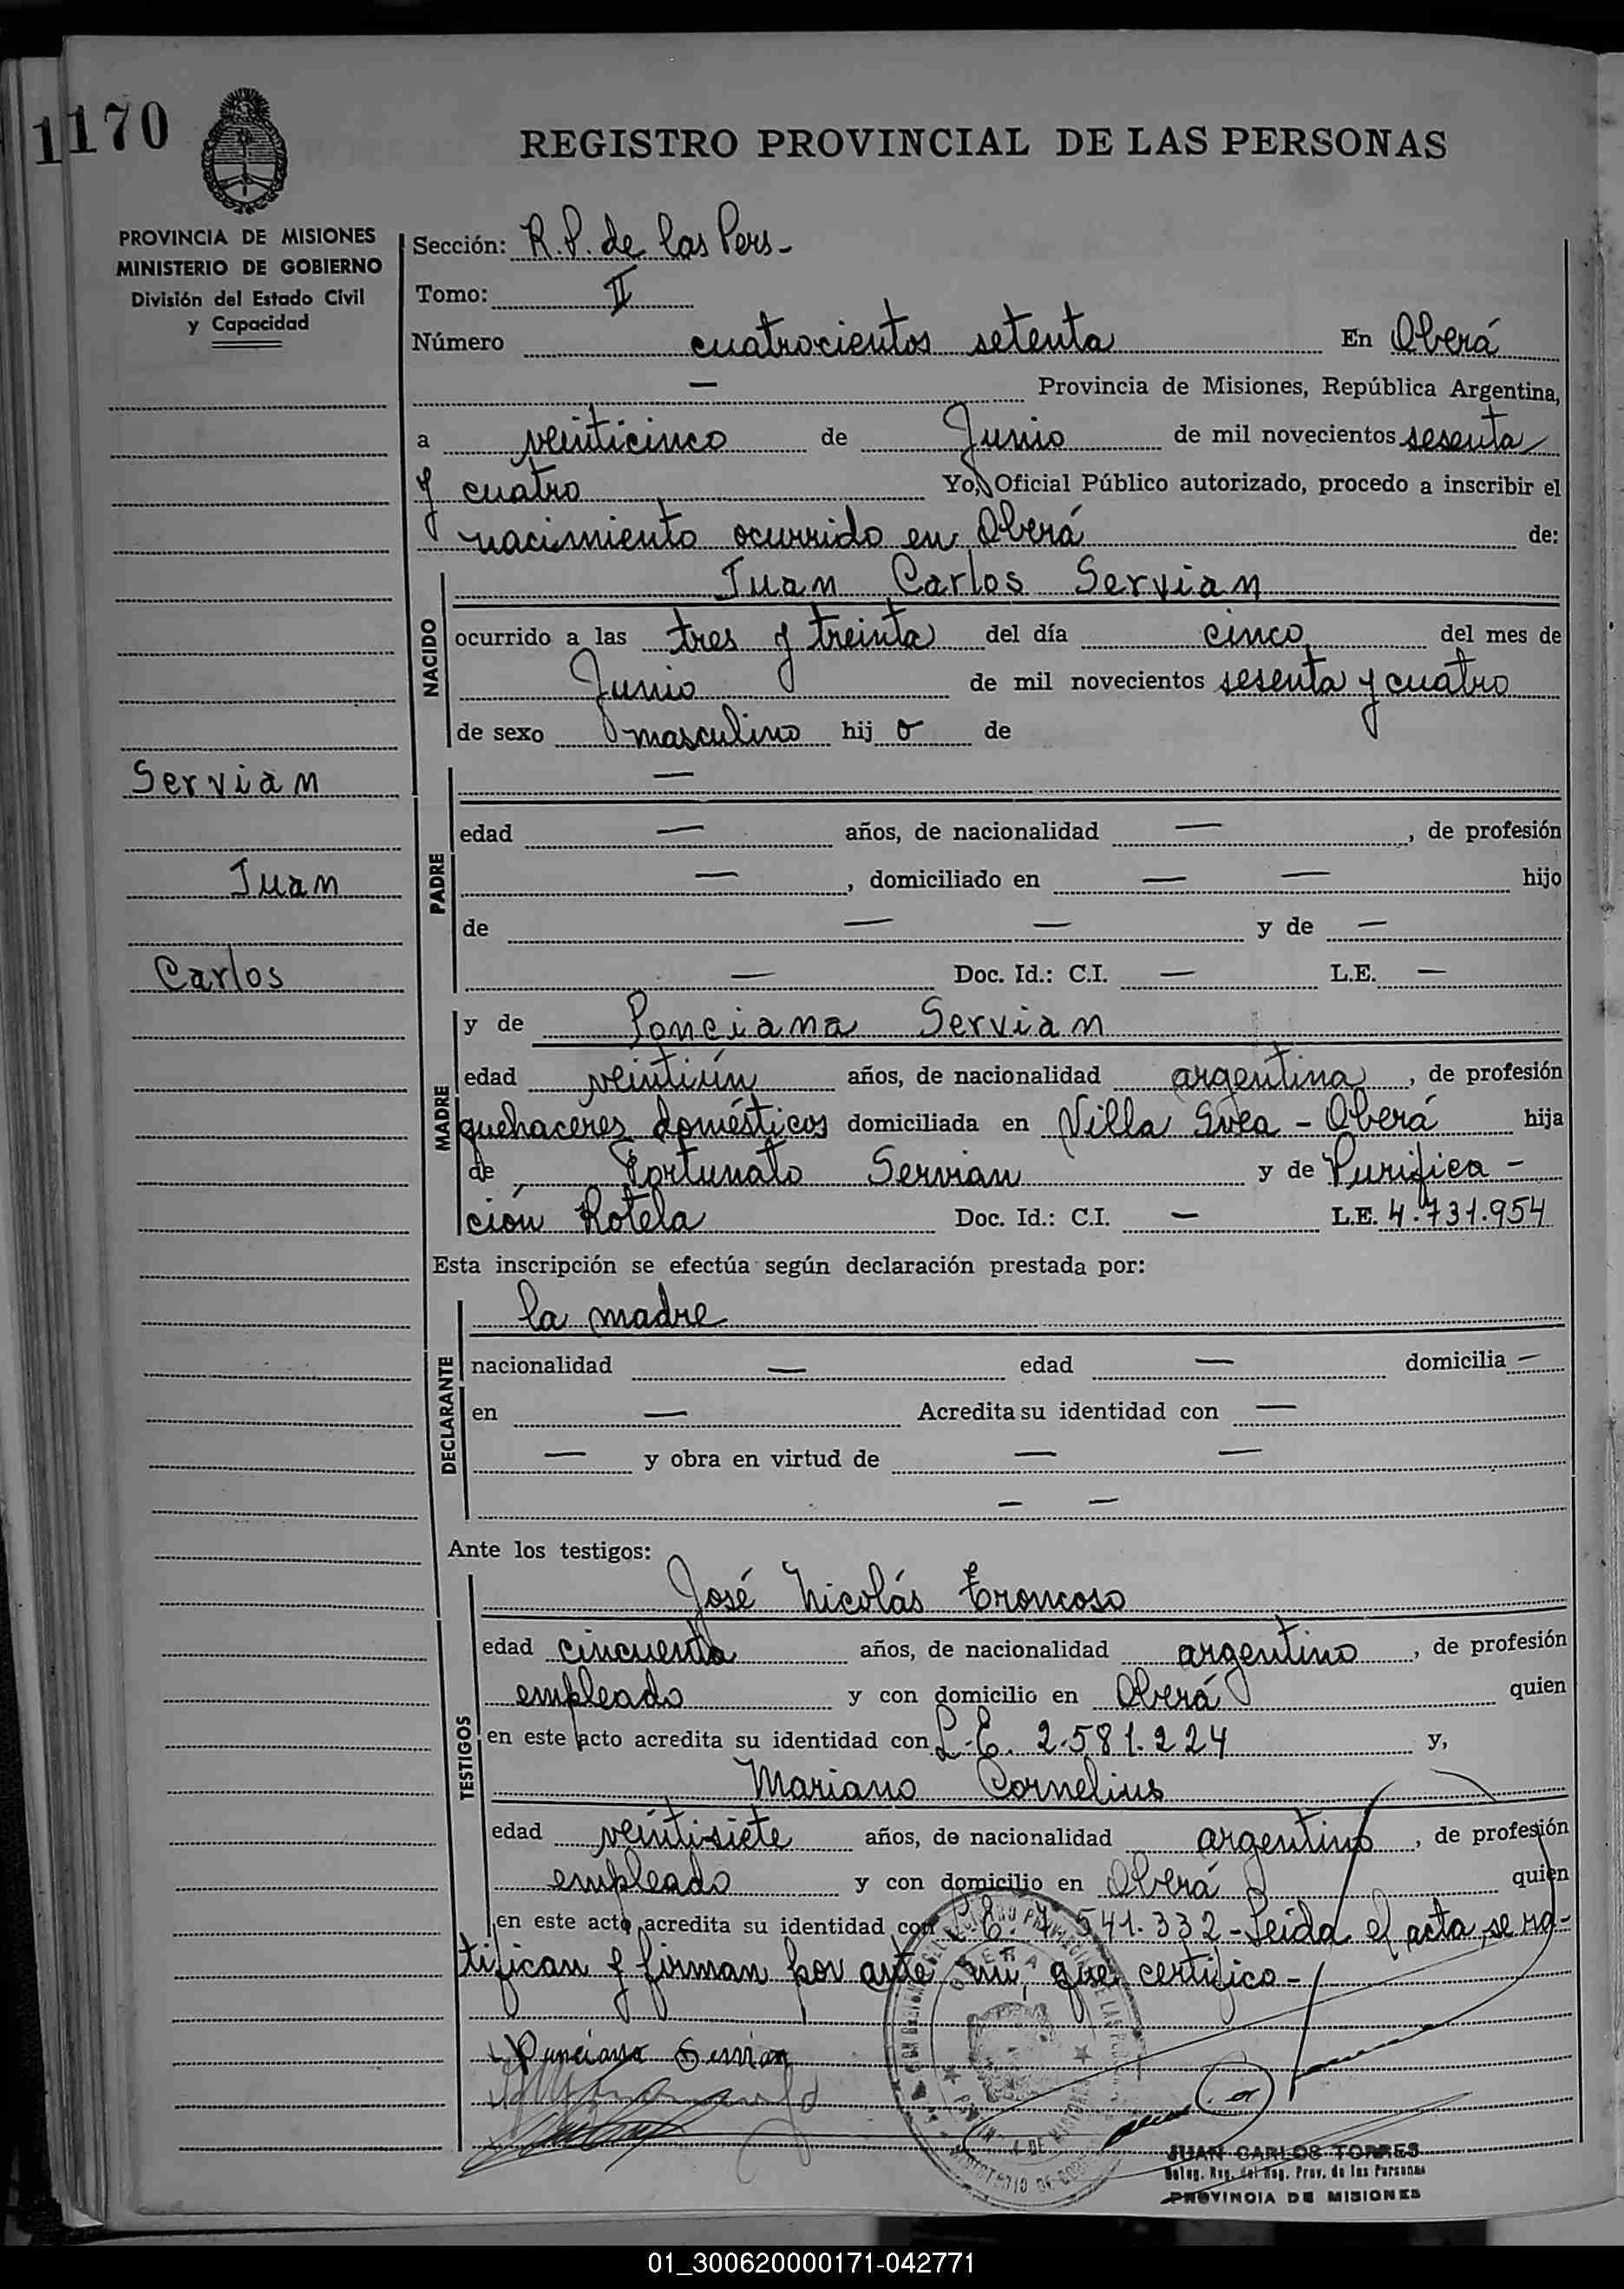 1170
REGISTRO PROVINCIAL DE LAS PERSONAS
PROVINCIA DE MISIONES
MINISTERIO DE GOBIERNO
División del Estado Civil
y Capacidad
Sección: R.P. de las Pers-
Tomo: II
Número cuatrocientos setenta En Oberá
— Provincia de Misiones, República Argentina,
a veinticinco de Junio de mil novecientos sesenta
y cuatro Yo, Oficial Público autorizado, procedo a inscribir el
nacimiento ocurrido en Oberá de:
NACIDO
Juan Carlos Servian
ocurrido a las tres y treinta del día cinco del mes de
Junio de mil novecientos sesenta y cuatro
de sexo masculino hij o de
Servian
Juan
Carlos
PADRE
—
edad — años, de nacionalidad — , de profesión
— , domiciliado en — — hijo
de — — y de —
— Doc. Id.: C.I. — L.E. —
MADRE
y de Ponciana Servian
edad veintiún años, de nacionalidad argentina , de profesión
quehaceres domésticos domiciliada en Villa Svea - Oberá hija
de Fortunato Servian y de Purifica-
ción Rotela Doc. Id.: C.I. — L.E. 4.731.954
Esta inscripción se efectúa según declaración prestada por:
DECLARANTE
la madre
nacionalidad — edad — domicilia —
en — Acredita su identidad con —
— y obra en virtud de — —
— —
Ante los testigos:
TESTIGOS
José Nicolás Troncoso
edad cincuenta años, de nacionalidad argentino , de profesión
empleado y con domicilio en Oberá quien
en este acto acredita su identidad con L.E. 2.581.224 y,
Mariano Cornelius
edad veintisiete años, de nacionalidad argentino , de profesión
empleado y con domicilio en Oberá quien
en este acto acredita su identidad con L.E. 7.541.332 - Leída el acta, se ra-
tifican y firman por ante mi, que certifico -
Ponciana Servian
OBERA
JUAN CARLOS TORRES
Deleg. Reg. del Reg. Prov. de las Personas
PROVINCIA DE MISIONES
01_300620000171-042771